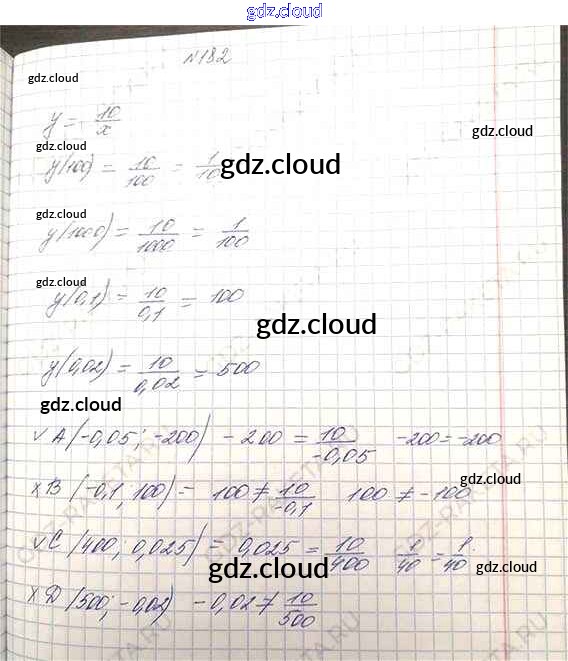 gdz.cloud
№182
gdz.cloud
y = 10/x
y(100) = 10/100 = 1/10
gdz.cloud
gdz.cloud
y(1000) = 10/1000 = 1/100
gdz.cloud
y(0,1) = 10/0,1 = 100
gdz.cloud
y(0,02) = 10/0,02 = 500
gdz.cloud
√ A (-0,05; -200) -200 = 10/-0,05 -200 = -200
gdz.cloud
x B (-0,1; 100) = 100 ≠ 10/-0,1 100 ≠ -100
√ C (400; 0,025) = 0,025 = 10/400 1/40 = 1/40
gdz.cloud
gdz.cloud
x D (500; -0,02) -0,02 ≠ 10/500